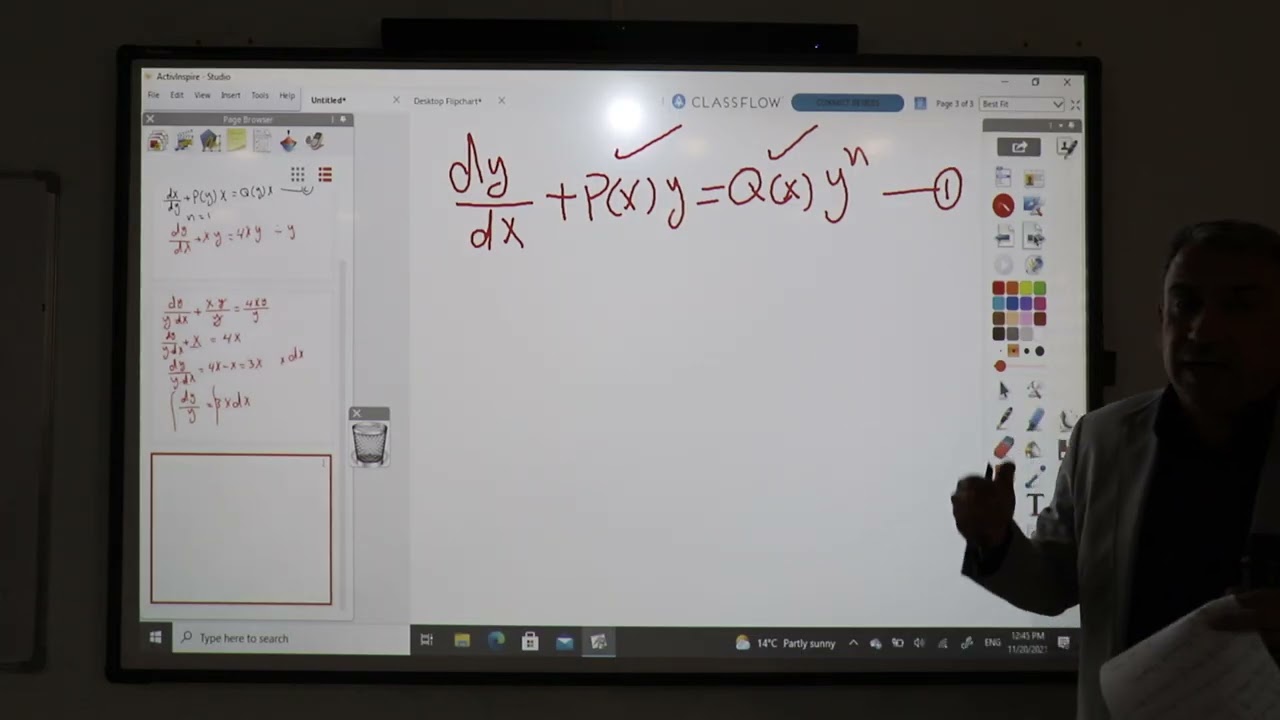 ActivInspire - Studio
File Edit View Insert Tools Help
Untitled*
Desktop Flipchart*
CLASSFLOW
Page 3 of 3
Best Fit
Page Browser
dx/dy + P(y) x = Q(y) x
n = 1
dy/dx + xy = 4xy ÷ y
dy/y dx + xy/y = 4xy/y
dy/y dx + x = 4x
dy/y dx = 4x - x = 3x × dx
∫ dy/y = ∫ 3x dx
dy/dx + P(x) y = Q(x) y^n — ①
T
Type here to search
14°C Partly sunny
ENG
12:45 PM